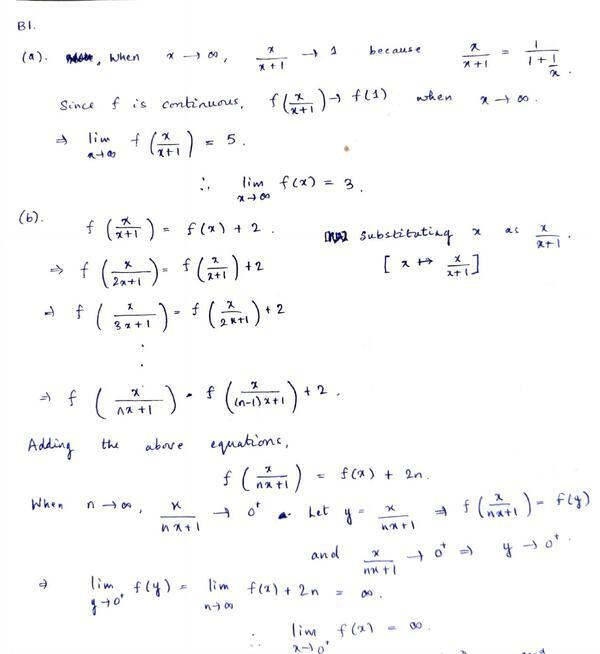 B1.
(a). , When x → ∞, x/(x+1) → 1 because x/(x+1) = 1/(1+1/x).
Since f is continuous, f(x/(x+1)) → f(1) when x → ∞.
⇒ lim x→∞ f(x/(x+1)) = 5.
∴ lim x→∞ f(x) = 3.
(b). f(x/(x+1)) = f(x) + 2. Substituting x as x/(x+1).
⇒ f(x/(2x+1)) = f(x/(x+1)) + 2 [x ↦ x/(x+1)]
⇒ f(x/(3x+1)) = f(x/(2x+1)) + 2
.
.
⇒ f(x/(nx+1)) = f(x/((n-1)x+1)) + 2.
Adding the above equations,
f(x/(nx+1)) = f(x) + 2n.
When n → ∞, x/(nx+1) → 0⁺. Let y = x/(nx+1) ⇒ f(x/(nx+1)) = f(y)
and x/(nx+1) → 0⁺ ⇒ y → 0⁺.
⇒ lim y→0⁺ f(y) = lim n→∞ f(x) + 2n = ∞.
∴ lim x→0⁺ f(x) = ∞.